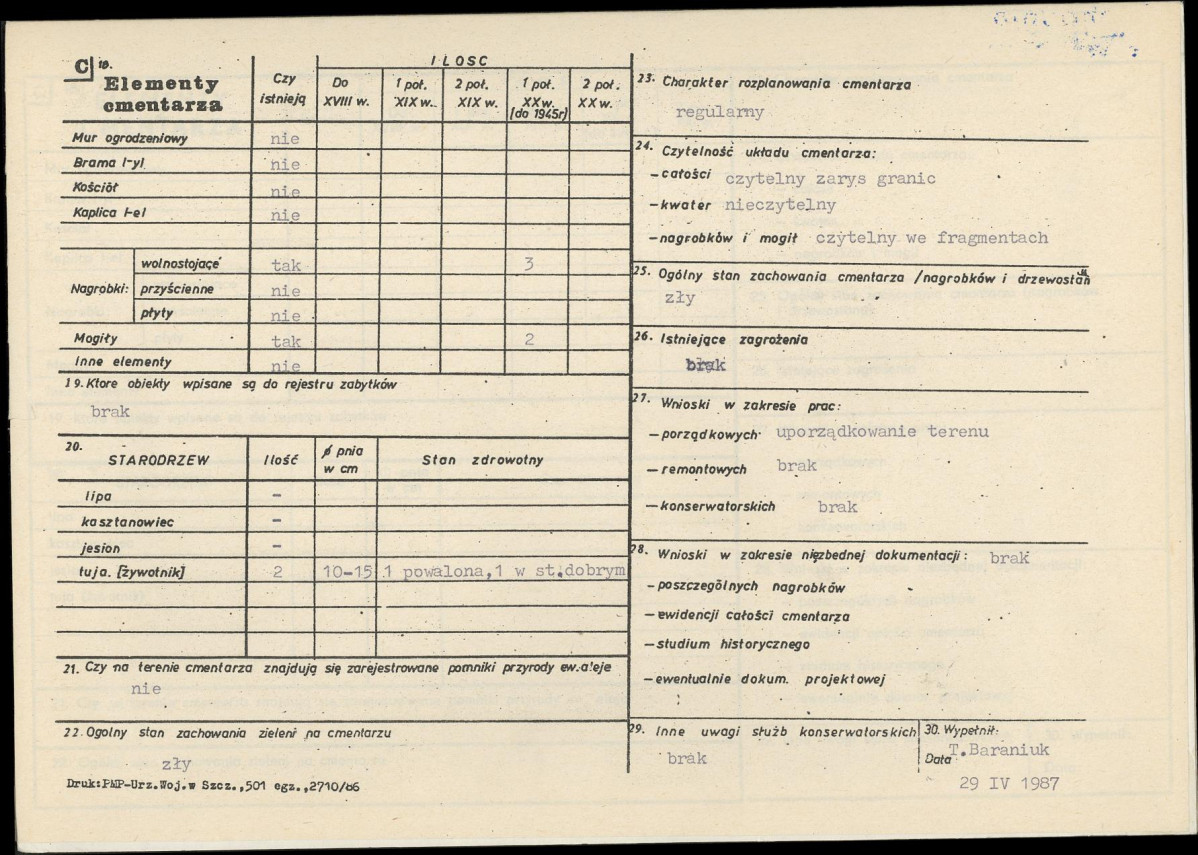 C 18.
Elementy cmentarza
Czy istnieją
ILOSC
Do XVIII w.
1 poł. XIX w.
2 poł. XIX w.
1 poł. XX w. [do 1945r]
2 poł. XX w.
Mur ogrodzeniowy nie
Brama I-yl nie
Kościół nie
Kaplica I-el nie
Nagrobki:
wolnostojące tak 3
przyścienne nie
płyty nie
Mogiły tak 2
Inne elementy nie
19. Ktore obiekty wpisane są do rejestru zabytków
brak
20.
STARODRZEW Ilość ∅ pnia w cm Stan zdrowotny
lipa -
kasztanowiec -
jesion -
tuja. [żywotnik] 2 10-15 1 powalona,1 w st.dobrym
21. Czy na terenie cmentarza znajdują się zarejestrowane pomniki przyrody ew.aleje
nie
22. Ogolny stan zachowania zieleni na cmentarzu
zły
Druk:PMP-Urz.Woj.w Szcz.,501 egz.,2710/86
23. Charakter rozplanowania cmentarza
regularny
24. Czytelność układu cmentarza:
-całości czytelny zarys granic
-kwater nieczytelny
-nagrobków i mogił czytelny we fragmentach
25. Ogólny stan zachowania cmentarza /nagrobków i drzewostanu
zły
26. Istniejące zagrożenia
brak
27. Wnioski w zakresie prac:
-porządkowych uporządkowanie terenu
-remontowych brak
-konserwatorskich brak
28. Wnioski w zakresie niezbednej dokumentacji: brak
-poszczególnych nagrobków
-ewidencji całości cmentarza
-studium historycznego
-ewentualnie dokum. projektowej
29. Inne uwagi służb konserwatorskich
brak
30. Wypełnił:
T.Baraniuk
Data
29 IV 1987